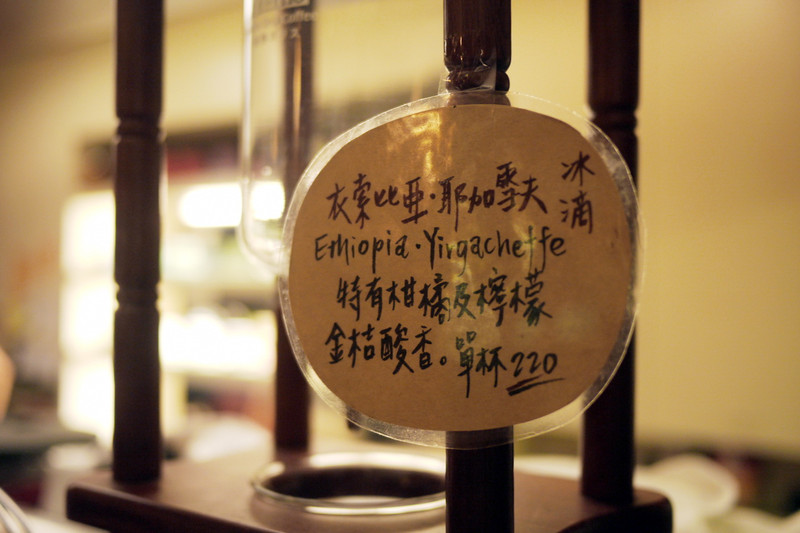 衣索比亞·耶加雪夫
冰滴
Ethiopia·Yirgacheffe
特有柑橘及檸檬
金桔酸香。單杯220